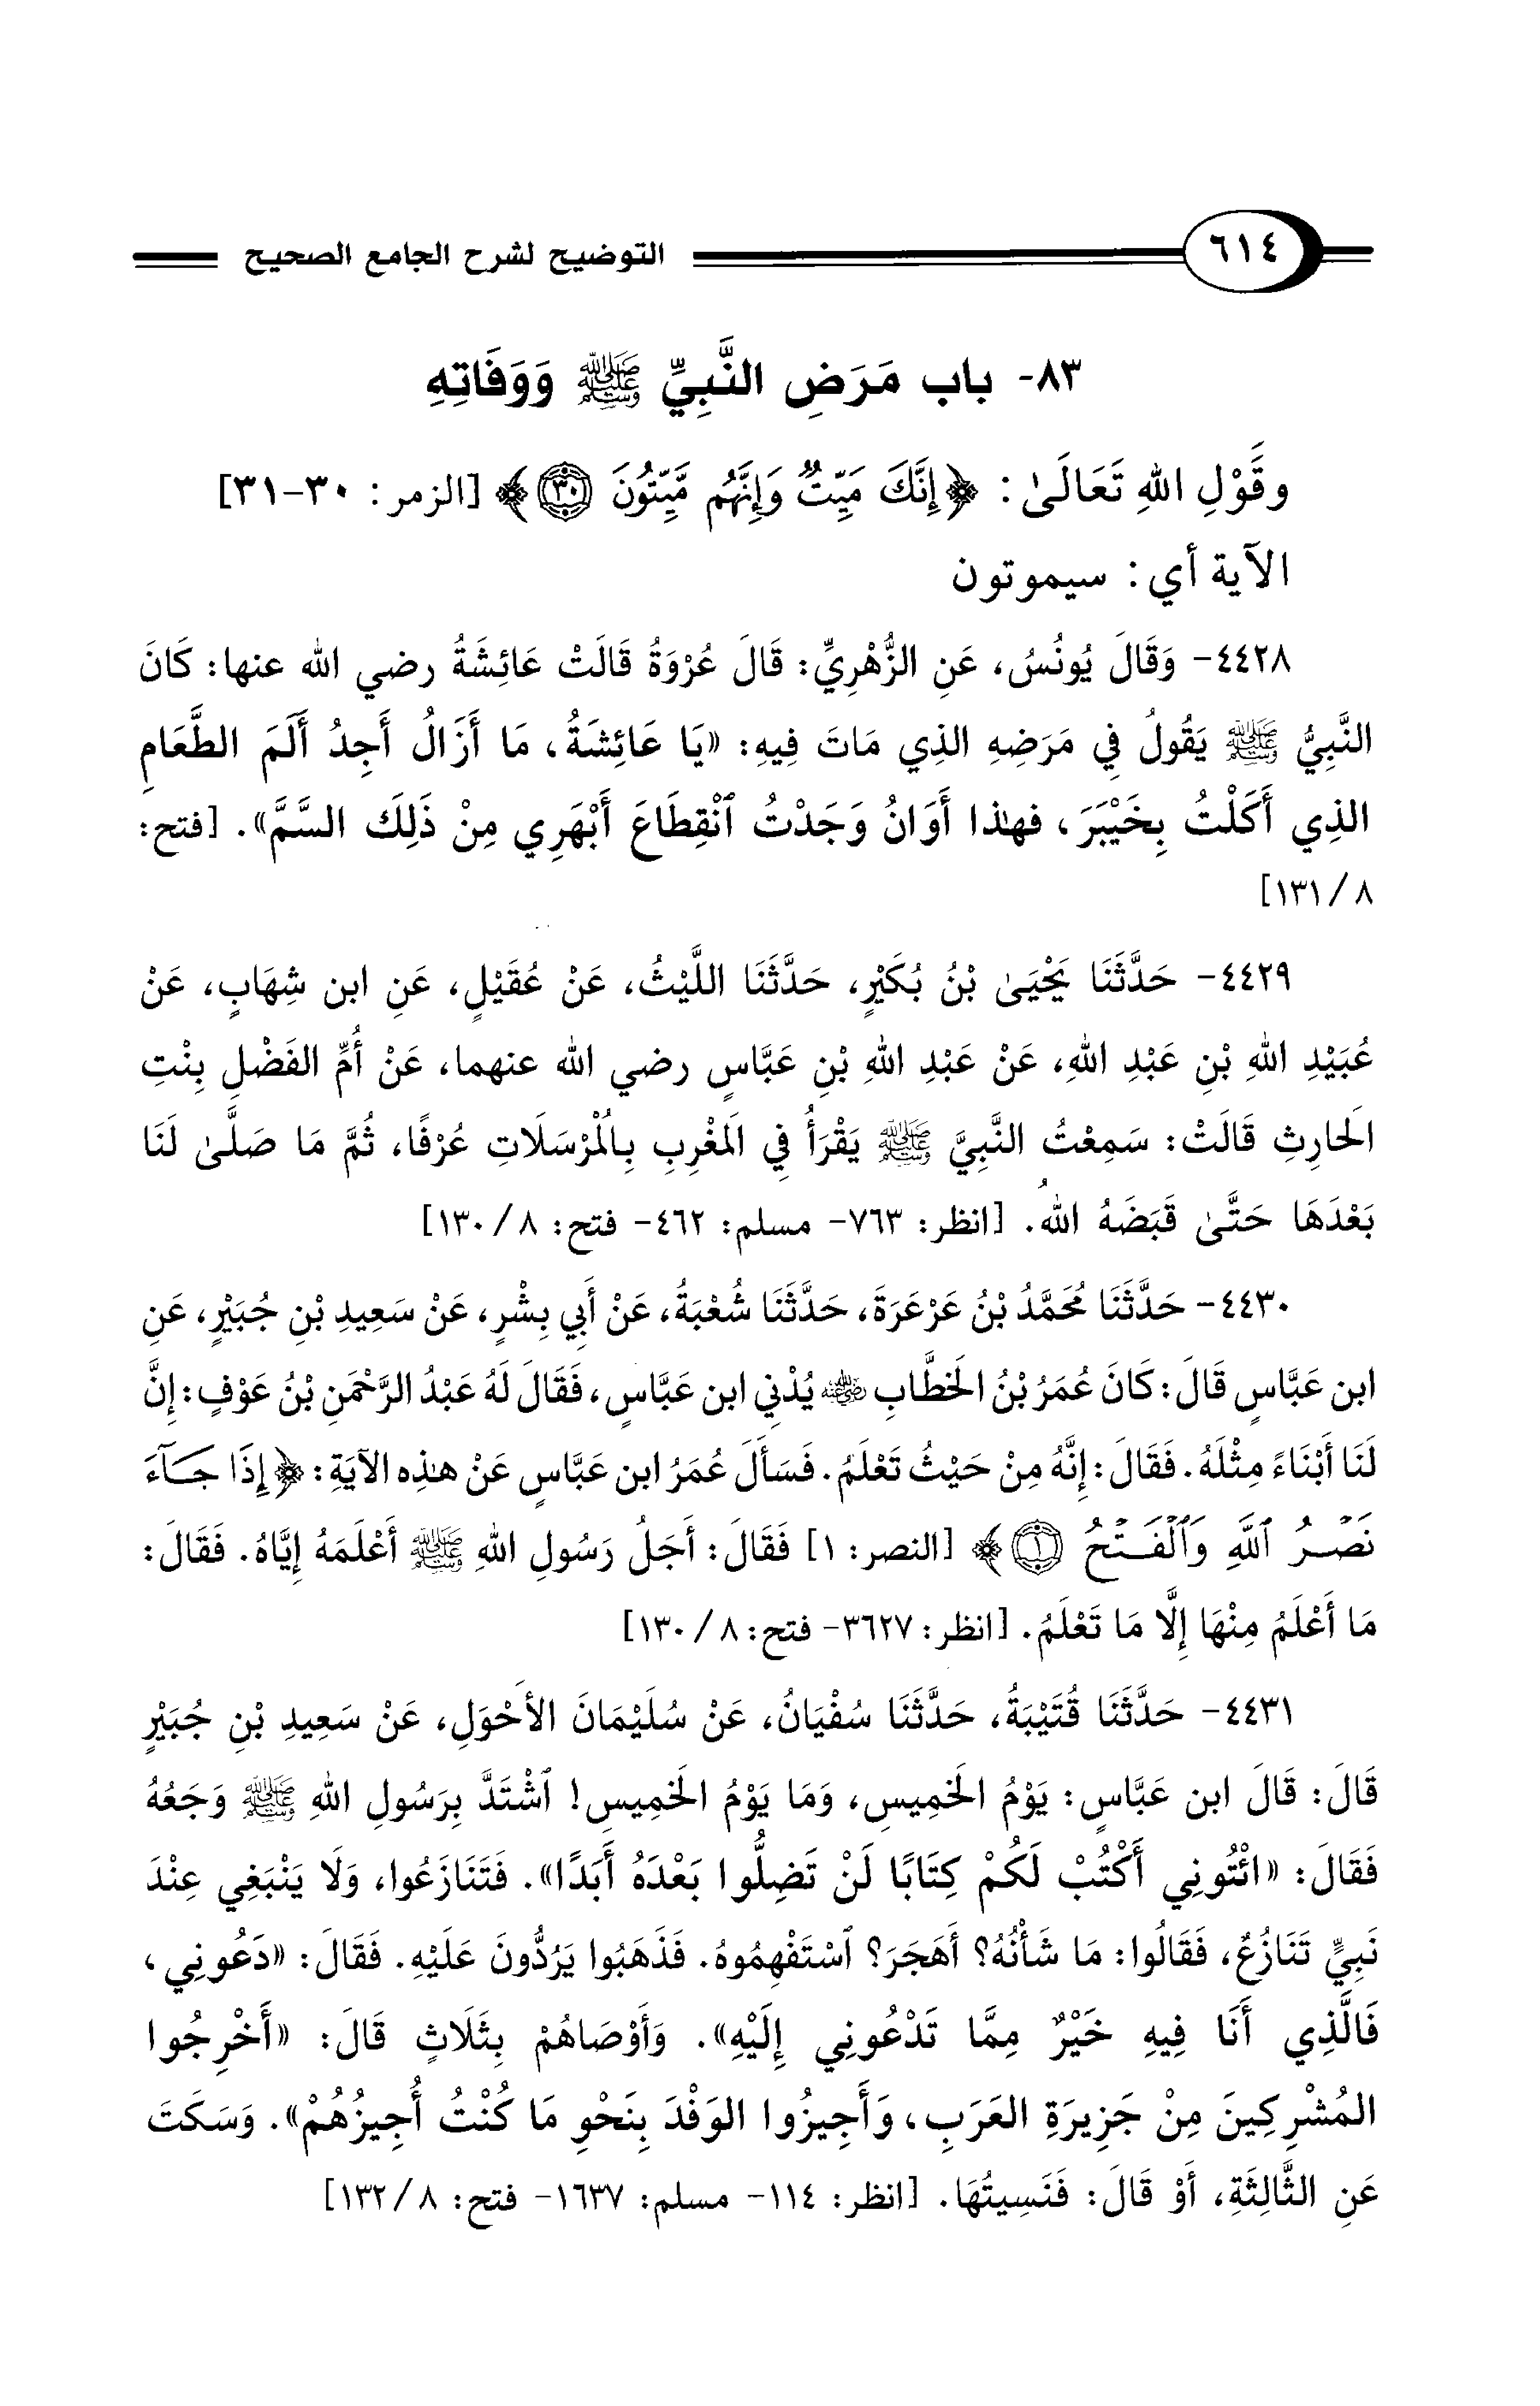 ٦١٤ التوضيح لشرح الجامع الصحيح
٨٣- باب مَرَضِ النَّبِيِّ ﷺ وَوَفَاتِهِ
وقَّوْلِ اللهِ تَعَالَىٰ: ﴿إِنَّكَ مَيِّتٌ وَإِنَّهُم مَّيِّتُونَ ٣٠﴾ [الزمر: ٣٠-٣١]
الآية أي: سيموتون
٤٤٢٨- وَقَالَ يُونُسُ، عَنِ الزُّهْرِيِّ: قَالَ عُرْوَةُ قَالَتْ عَائِشَةُ رضي الله عنها: كَانَ
النَّبِيُّ ﷺ يَقُولُ فِي مَرَضِهِ الذِي مَاتَ فِيهِ: «يَا عَائِشَةُ، مَا أَزَالُ أَجِدُ أَلَمَ الطَّعَامِ
الذِي أَكَلْتُ بِخَيْبَرَ، فهٰذا أَوَانُ وَجَدْتُ ٱنْقِطَاعَ أَبْهَرِي مِنْ ذَلِكَ السَّمِّ». [فتح:
٨/ ١٣١]
٤٤٢٩- حَدَّثَنَا يَحْيَىٰ بْنُ بُكَيْرٍ، حَدَّثَنَا اللَّيْثُ، عَنْ عُقَيْلٍ، عَنِ ابن شِهَابٍ، عَنْ
عُبَيْدِ اللهِ بْنِ عَبْدِ اللهِ، عَنْ عَبْدِ اللهِ بْنِ عَبَّاسٍ رضي الله عنهما، عَنْ أُمِّ الفَضْلِ بِنْتِ
الحَارِثِ قَالَتْ: سَمِعْتُ النَّبِيَّ ﷺ يَقْرَأُ فِي المَغْرِبِ بِالْمُرْسَلَاتِ عُرْفًا، ثُمَّ مَا صَلَّىٰ لَنَا
بَعْدَهَا حَتَّىٰ قَبَضَهُ اللهُ. [انظر: ٧٦٣- مسلم: ٤٦٢- فتح: ٨/ ١٣٠]
٤٤٣٠- حَدَّثَنَا مُحَمَّدُ بْنُ عَرْعَرَةَ، حَدَّثَنَا شُعْبَةُ، عَنْ أَبِي بِشْرٍ، عَنْ سَعِيدِ بْنِ جُبَيْرٍ، عَنِ
ابن عَبَّاسٍ قَالَ: كَانَ عُمَرُ بْنُ الخَطَّابِ رضي الله عنه يُدْنِي ابن عَبَّاسٍ، فَقَالَ لَهُ عَبْدُ الرَّحْمَنِ بْنُ عَوْفٍ: إِنَّ
لَنَا أَبْنَاءً مِثْلَهُ. فَقَالَ: إِنَّهُ مِنْ حَيْثُ تَعْلَمُ. فَسَأَلَ عُمَرُ ابن عَبَّاسٍ عَنْ هٰذِه الآيَةِ: ﴿إِذَا جَآءَ
نَصْرُ ٱللَّهِ وَٱلْفَتْحُ ١﴾ [النصر: ١] فَقَالَ: أَجَلُ رَسُولِ اللهِ ﷺ أَعْلَمَهُ إِيَّاهُ. فَقَالَ:
مَا أَعْلَمُ مِنْهَا إِلَّا مَا تَعْلَمُ. [انظر: ٣٦٢٧- فتح: ٨/ ١٣٠]
٤٤٣١- حَدَّثَنَا قُتَيْبَةُ، حَدَّثَنَا سُفْيَانُ، عَنْ سُلَيْمَانَ الأَحْوَلِ، عَنْ سَعِيدِ بْنِ جُبَيْرٍ
قَالَ: قَالَ ابن عَبَّاسٍ: يَوْمُ الخَمِيسِ، وَمَا يَوْمُ الخَمِيسِ! ٱشْتَدَّ بِرَسُولِ اللهِ ﷺ وَجَعُهُ
فَقَالَ: «ائْتُونِي أَكْتُبْ لَكُمْ كِتَابًا لَنْ تَضِلُّوا بَعْدَهُ أَبَدًا». فَتَنَازَعُوا، وَلَا يَنْبَغِي عِنْدَ
نَبِيٍّ تَنَازُعٌ، فَقَالُوا: مَا شَأْنُهُ؟ أَهَجَرَ؟ ٱسْتَفْهِمُوهُ. فَذَهَبُوا يَرُدُّونَ عَلَيْهِ. فَقَالَ: «دَعُونِي،
فَالَّذِي أَنَا فِيهِ خَيْرٌ مِمَّا تَدْعُونِي إِلَيْهِ». وَأَوْصَاهُمْ بِثَلَاثٍ قَالَ: «أَخْرِجُوا
المُشْرِكِينَ مِنْ جَزِيرَةِ العَرَبِ، وَأَجِيزُوا الوَفْدَ بِنَحْوِ مَا كُنْتُ أُجِيزُهُمْ». وَسَكَتَ
عَنِ الثَّالِثَةِ، أَوْ قَالَ: فَنَسِيتُهَا. [انظر: ١١٤- مسلم: ١٦٣٧- فتح: ٨/ ١٣٢]